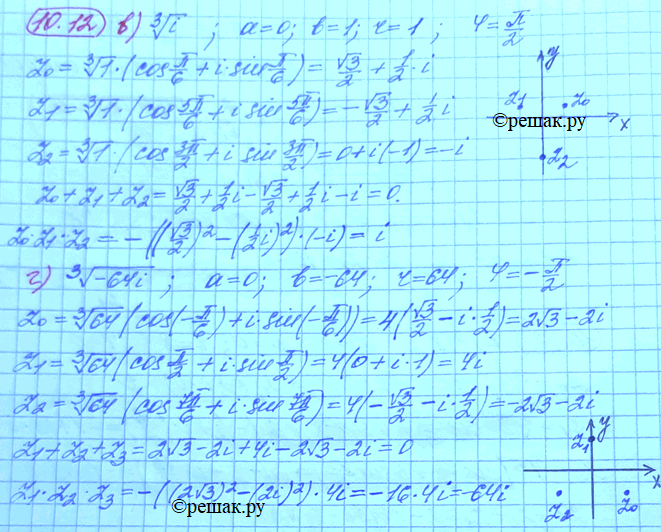 10.12 в) ∛i ; a=0; b=1; r=1 ; φ=π/2
z₀ = ∛1·(cos π/6 + i sin π/6) = √3/2 + 1/2·i
z₁ = ∛1·(cos 5π/6 + i sin 5π/6) = -√3/2 + 1/2 i
z₂ = ∛1·(cos 3π/2 + i sin 3π/2) = 0+i(-1) = -i
z₀+z₁+z₂ = √3/2 + 1/2 i - √3/2 + 1/2 i - i = 0.
z₀·z₁·z₂ = -((√3/2)² - (1/2 i)²)·(-i) = i
y
z₁
z₀
x
©решак.ру
z₂
г) ∛-64i ; a=0; b=-64; r=64; φ=-π/2
z₀ = ∛64 (cos(-π/6) + i·sin(-π/6)) = 4(√3/2 - i·1/2) = 2√3-2i
z₁ = ∛64 (cos π/2 + i·sin π/2) = 4(0+i·1) = 4i
z₂ = ∛64 (cos 7π/6 + i·sin 7π/6) = 4(-√3/2 - i·1/2) = -2√3-2i
z₁+z₂+z₃ = 2√3-2i+4i-2√3-2i = 0
z₁·z₂·z₃ = -((2√3)²-(2i)²)·4i = -16·4i = -64i
y
z₁
x
z₂
z₀
©решак.ру